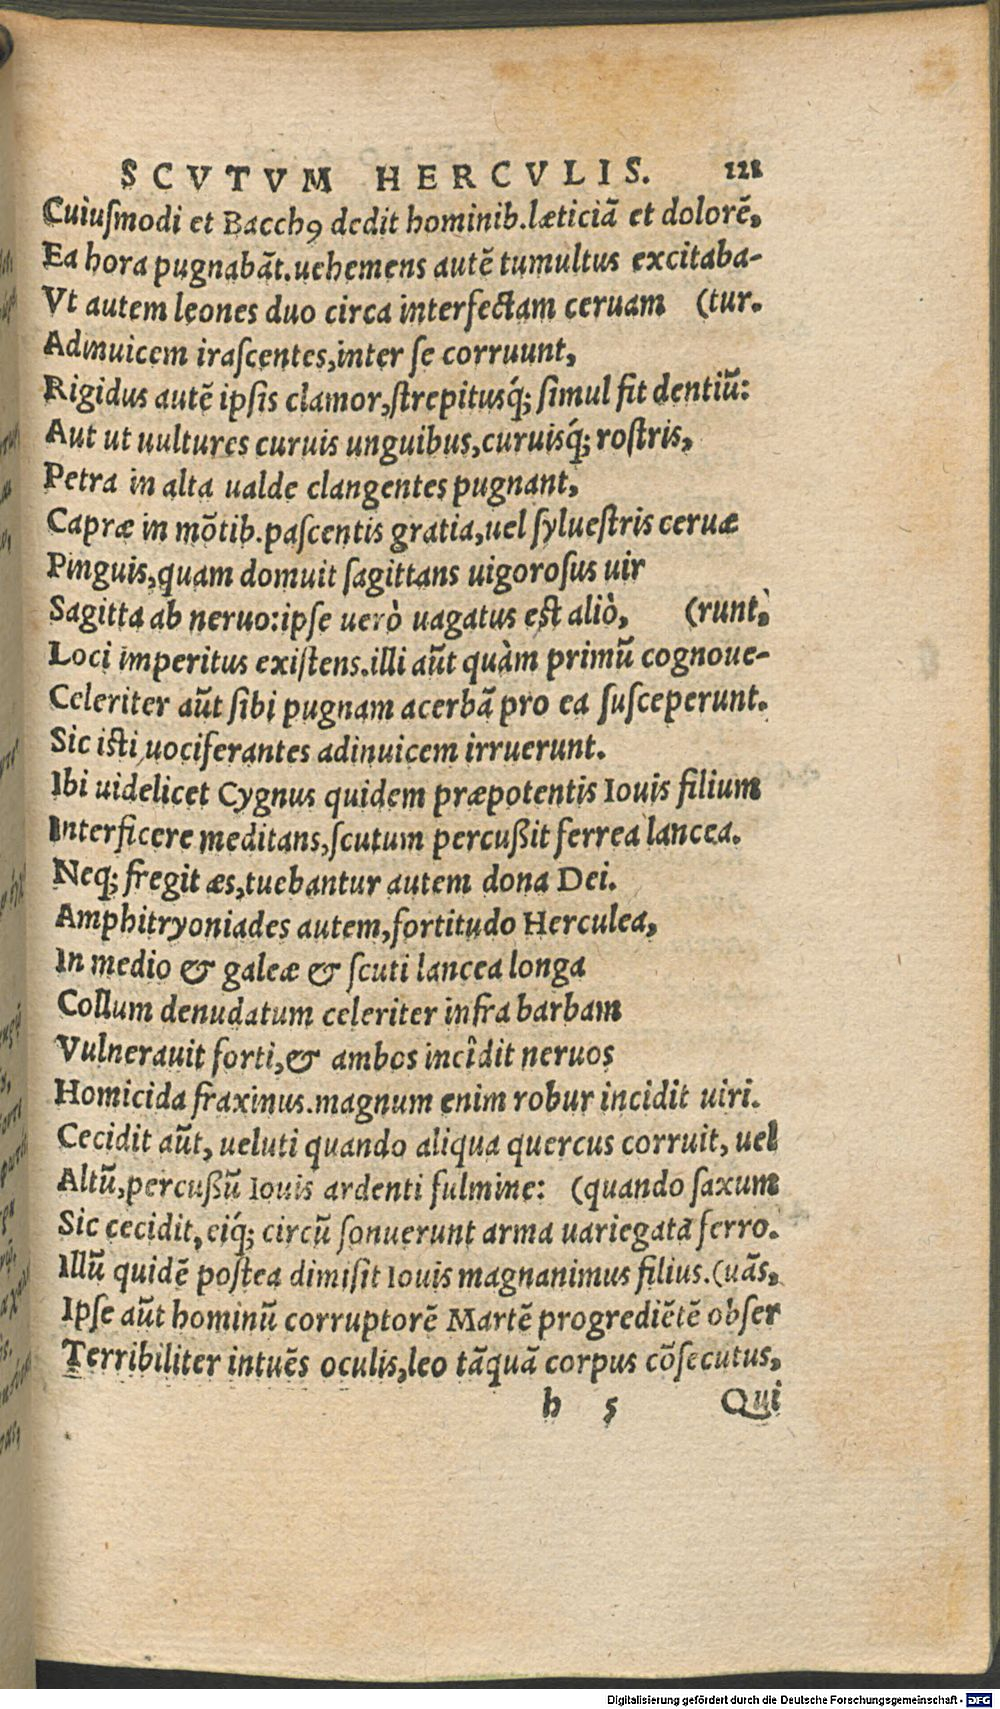 SCVTVM HERCVLIS. 121
Cuiuſmodi et Bacchꝰ dedit hominib. læticiã et dolorẽ,
Ea hora pugnabãt. uehemens autẽ tumultus excitaba-
Vt autem leones duo circa interfectam ceruam (tur.
Adinuicem iraſcentes, inter ſe corruunt,
Rigidus autẽ ipſis clamor, ſtrepitusq́; ſimul fit dentiũ:
Aut ut uultures curuis unguibus, curuisq́; roſtris,
Petra in alta ualde clangentes pugnant,
Capræ in mõtib. paſcentis gratia, uel ſylueſtris ceruæ
Pinguis, quam domuit ſagittans uigoroſus uir
Sagitta ab neruo: ipſe uerò uagatus eſt aliò, (runt,
Loci imperitus exiſtens. illi aũt quàm primũ cognoue-
Celeriter aũt ſibi pugnam acerbã pro ea ſuſceperunt.
Sic iſti uociferantes adinuicem irruerunt.
Ibi uidelicet Cygnus quidem præpotentis Iouis filium
Interficere meditans, ſcutum percußit ferrea lancea.
Neq; fregit æs, tuebantur autem dona Dei.
Amphitryoniades autem, fortitudo Herculea,
In medio & galeæ & ſcuti lancea longa
Collum denudatum celeriter infra barbam
Vulnerauit forti, & ambos incîdit neruos
Homicida fraxinus. magnum enim robur incidit uiri.
Cecidit aũt, ueluti quando aliqua quercus corruit, uel
Altũ, percußũ Iouis ardenti fulmine: (quando ſaxum
Sic cecidit, eiq́; circũ ſonuerunt arma uariegata ferro.
Illũ quidẽ poſtea dimiſit Iouis magnanimus filius. (uãs,
Ipſe aũt hominũ corruptorẽ Martẽ progrediẽtẽ obſer
Terribiliter intuẽs oculis, leo tãquã corpus cõſecutus,
h 5 Qui
Digitalisierung gefördert durch die Deutsche Forschungsgemeinschaft - DFG